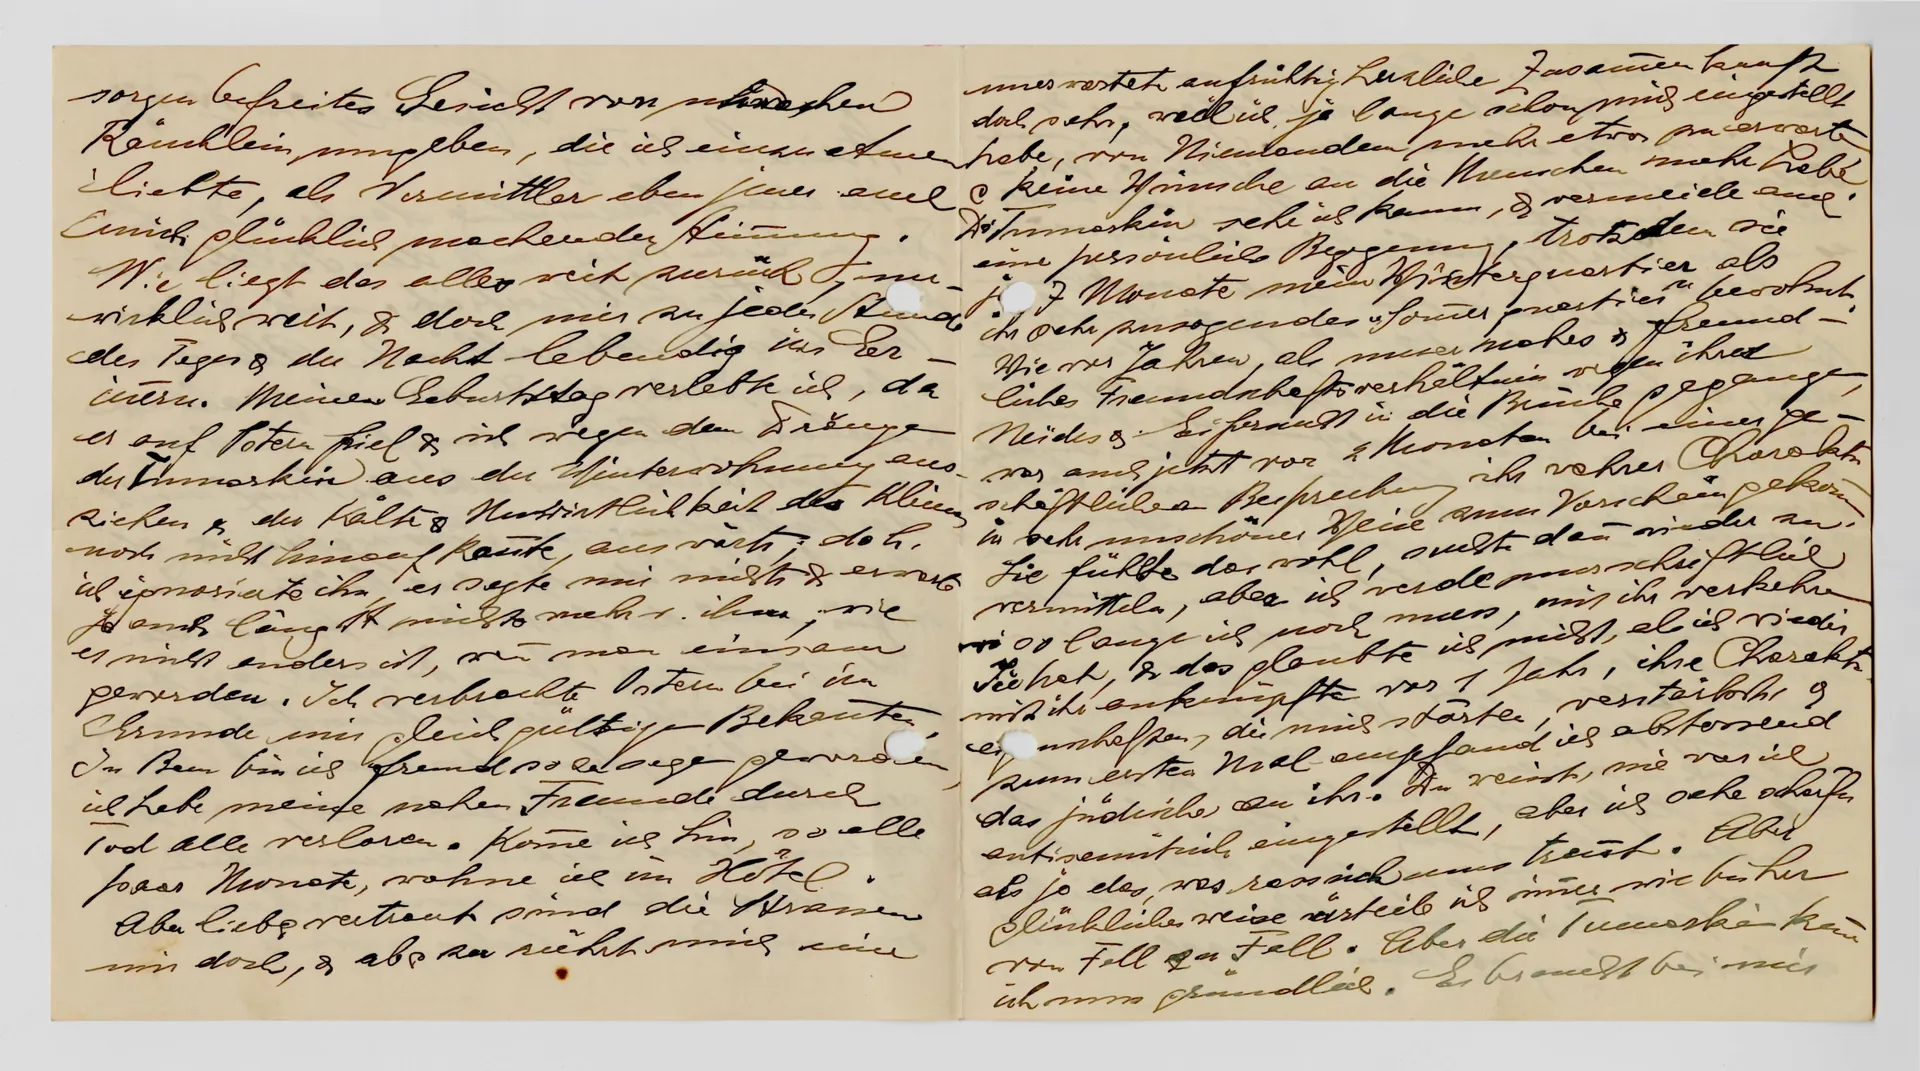 sorgen befreites Gesicht von
Räuchlein, umgeben, die ich einzuatmen
liebte, als Vermittler eben jener auch
mich glücklich machenden Stim̄ung.
Wie liegt das alles weit zurück,
wirklich weit, & doch mir zu jeder Stunde
des Tages & der Nacht lebendig im Er-
in̄ern. Meinen Geburtstag verlebte ich, da
er auf Ostern fiel & ich wegen dem Gedränge
der Tumarkin aus der Winterwohnung aus-
ziehen & der Kälte & Unwirtlichkeit des Kleinen
noch nicht hinauf kon̄te, auswärts; d. h.
ich ignorierte ihn, er sagte mir nichts & erwarte
ja auch längst nichts mehr v. ihm, wie
es nicht anders ist, wen̄ man einsam
geworden. Ich verbrachte Ostern bei im
Grunde mir gleichgültigen Bekan̄ten.
In Bern bin ich fremd sozusagen geworden,
ich habe meine nahen Freunde durch
Tod alle verloren. Kom̄e ich hin, so alle
paar Monate, wohne ich im Hôtel.
Aber lieb & vertraut sind die Strassen
mir doch, & ab & zu rührt mich eine
unerwartete aufrichtig herzliche Zusam̄enkunft
doch sehr, weil ich ja lange schon mich eingestellt
habe, von Niemandem mehr etwas zu erwarten
& keine Wünsche an die Menschen mehr habe.
Die Tumarkin sehe ich kaum, & vermeide auch
eine persönliche Begegnung, trotzdem sie
ja 7 Monate mein Winterquartier als
ihr sehr zusagendes „Som̄erquartier" bewohnt.
Wie vor Jahren, als unser nahes & freund-
liches Freundschaftsverhältnis wegen ihres
Neides & Eifersucht in die Brüche gegangen,
war auch jetzt vor 2 Monaten bei einer ge-
schäftlichen Besprechung ihr wahrer Charakter
in sehr unschöner Weise zum Vorschein gekom̄en.
Sie fühlte das wohl, suchte dan̄ wieder zu
vermitteln, aber ich werde nur schriftlich
so lange ich noch muss, mit ihr verkehren.
Sie hat, & das glaubte ich nicht, als ich wieder
mit ihr anknüpfte vor 1 Jahr, ihre Charakter-
eigenschaften, die mich störten, verstärkt &
zum ersten Mal empfand ich abstossend
das jüdische an ihr. Du weisst, nie war ich
antisemitisch eingestellt, aber ich sehe schärfer
als je das, was rassisch uns tren̄t. Aber
glücklicherweise urteile ich im̄er wie bisher
von Fall zu Fall. Aber die Tumarkin ken̄e
ich nun gründlich. Es braucht bei mir